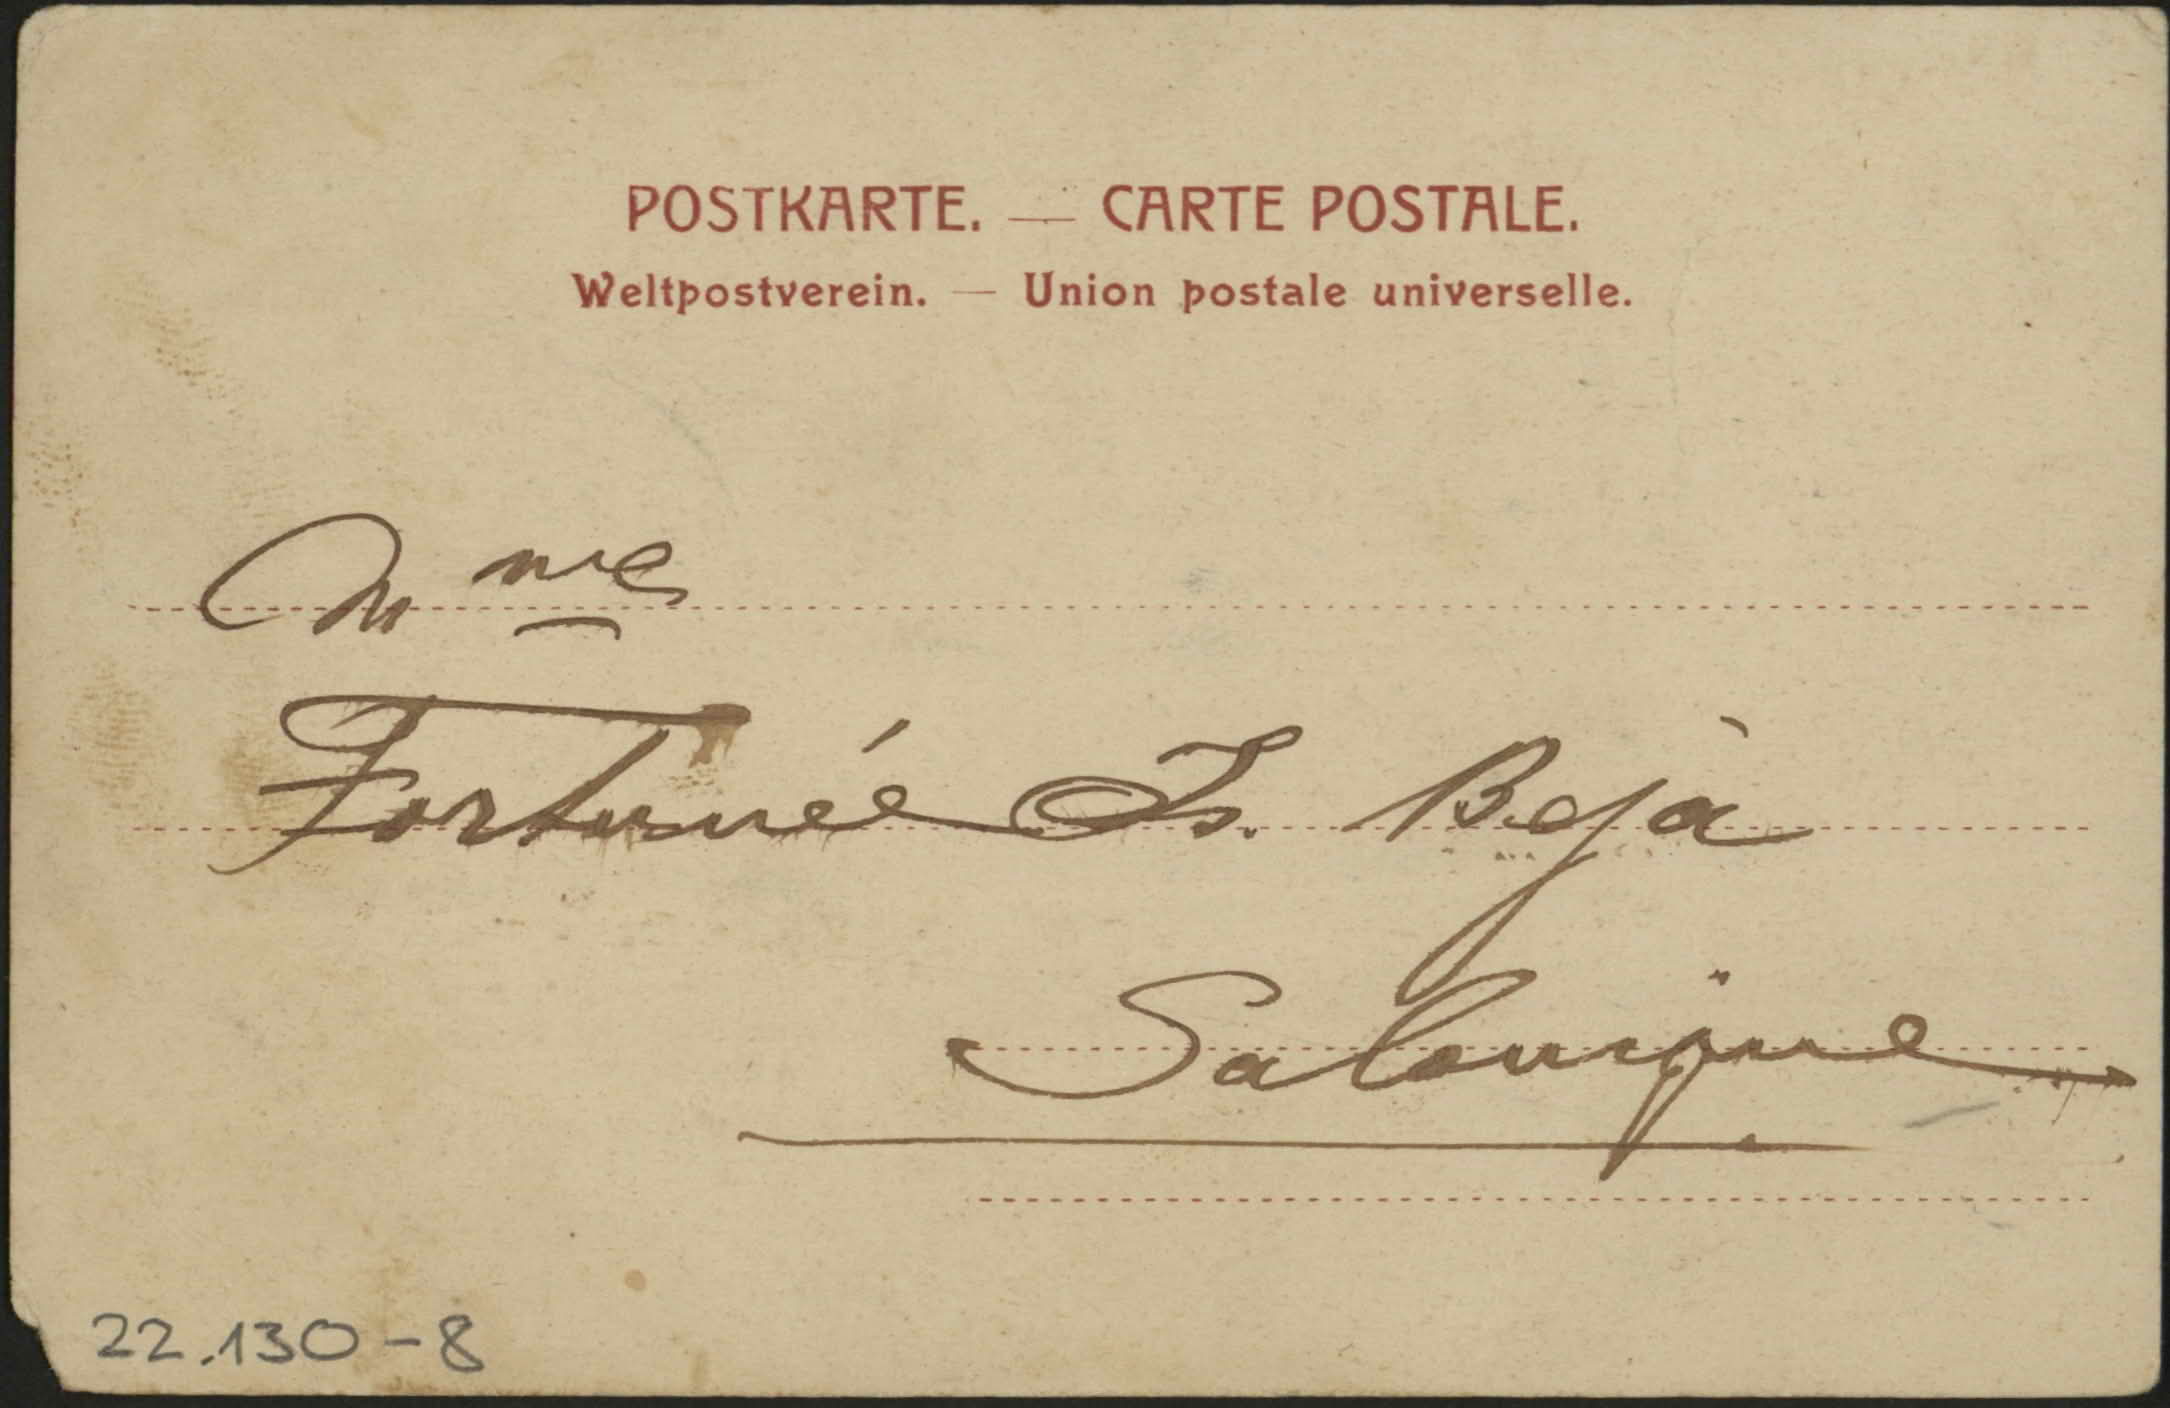 POSTKARTE. — CARTE POSTALE.
Weltpostverein. — Union postale universelle.
Mme
Fortunée Is. Bejà
Salonique
22.130-8